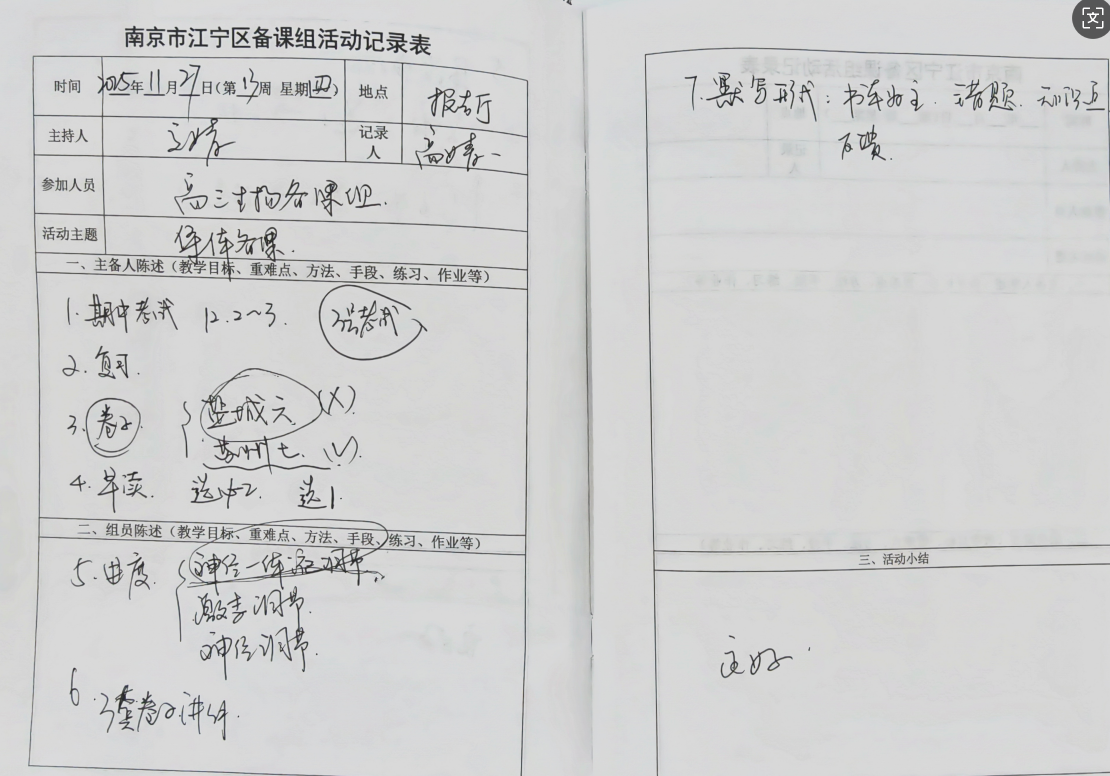 南京市江宁区备课组活动记录表
时间 2025年11月27日(第13周 星期四) 地点 报告厅
主持人 记录人
参加人员 高三生物备课组.
活动主题 集体备课.
一、主备人陈述（教学目标、重难点、方法、手段、练习、作业等）
1. 期中考试 12.2~3.
2. 复习.
3. 卷子. 盐城六 (X).
苏州七. (√).
4. 早读. 选必2. 选1.
二、组员陈述（教学目标、重难点、方法、手段、练习、作业等）
5. 进度. 神经-体液调节.
激素调节.
神经调节.
6. 卷子讲评.
7. 默写形式: 书本为主. 错题. 知识点
反馈.
三、活动小结
良好.